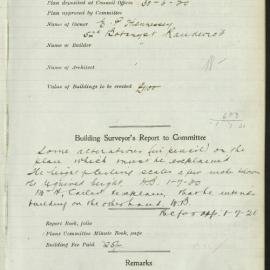 Plan deposited at Council Office 30-6-20
Plan approved by Committee
Name of Owner E. P. Hennessy
52 Botany St Randwick
Name of Builder "
Name of Architect "
Value of Buildings to be erected £900
Building Surveyor's Report to Committee
Some alterations (in pencil) on the
plan which must be explained
The height plate scales a few inches below
the required height. 1-7-20
Mr H. called to explain, that he
building on the other hand, W.B.
Refer app. 1-7-20
Report Book, folio
Plans Committee Minute Book, page
Building Fee Paid 25/-
Remarks